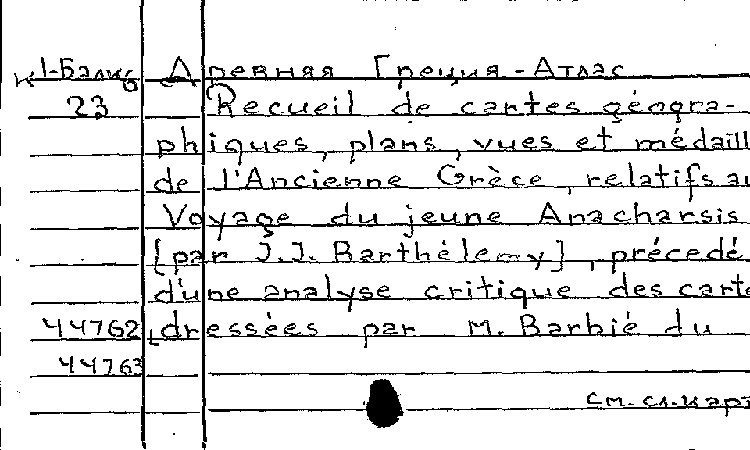 К I-Балк6 Древняя Греция - Атлас
23 Recueil de cartes géogra-
phiques, plans, vues et médaill
de l'Ancienne Grèce, relatifs au
Voyage du jeune Anacharsis
[par J.J. Barthélemy], précedé
d'une analyse critique des carte
44762 dressées par M. Barbié du
44763
см. сл. карт